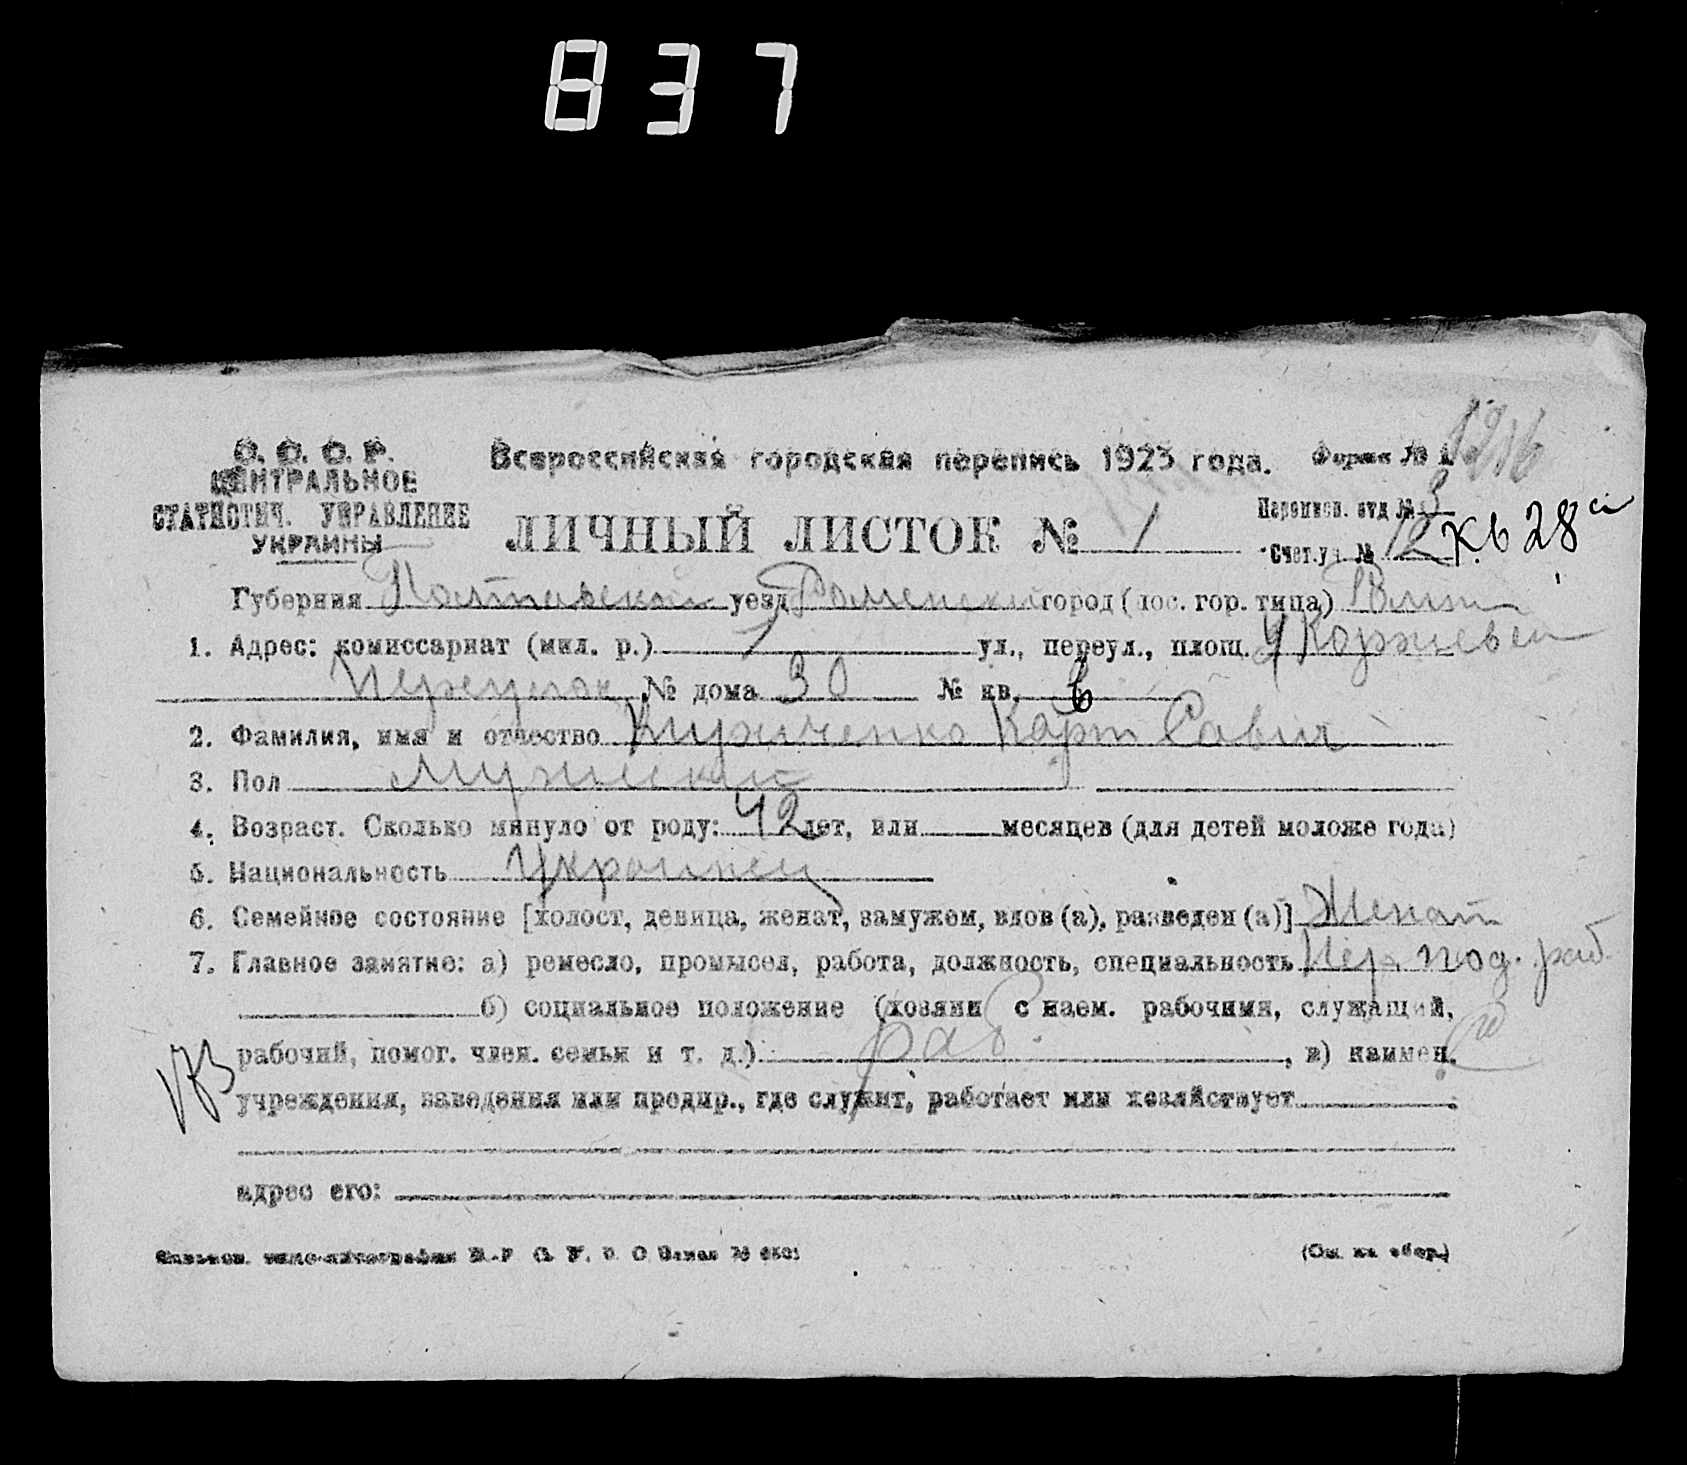 837
С. С. С. Р.
ЦЕНТРАЛЬНОЕ
СТАТИСТИЧ. УПРАВЛЕНИЕ
УКРАИНЫ
Всероссийская городская перепись 1923 года.
Форма № 1
1216
ЛИЧНЫЙ ЛИСТОК № 1
Переписн. отд № 3
Счет.уч. № 12
Кв 28
Губерния Полтавский уезд Роменский город (пос. гор. типа)
1. Адрес: комиссариат (мил. р.) 1 ул., переул., площ.
Переулок № дома 30 № кв. 6
2. Фамилия, имя и отчество Карп Савич
3. Пол Мужский
4. Возраст. Сколько минуло от роду: 42 лет, или месяцев (для детей моложе года)
5. Национальность Украинец
6. Семейное состояние [холост, девица, женат, замужем, вдов (а), разведен (а)] Женат
7. Главное занятие: а) ремесло, промысел, работа, должность, специальность Чер. под. раб.
б) социальное положение (хозяин с наем. рабочими, служащий,
рабочий, помог. член. семьи и т. д.) раб. , в) наимен.
учреждения, заведения или предпр., где служит, работает или хозяйствует
адрес его:
(См. на обор.)